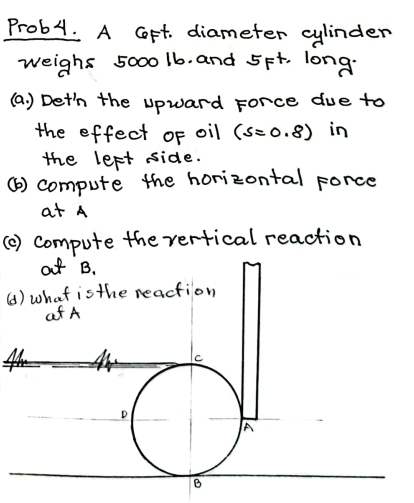 Prob 4. A 6ft. diameter cylinder
weighs 5000 lb. and 5ft. long.
(a.) Det'n the upward force due to
the effect of oil (s=0.8) in
the left side.
(b) compute the horizontal force
at A
(c) compute the vertical reaction
at B.
(d) what is the reaction
at A
C
D
A
B